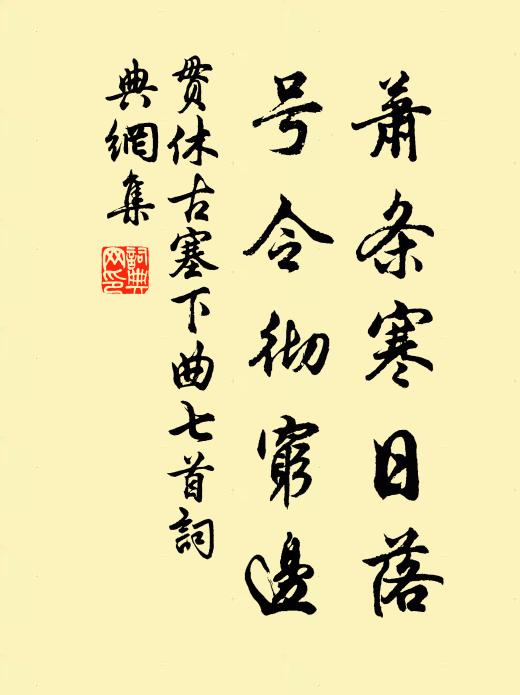 萧条寒日落
号令彻穷边
贯休古塞下曲七首词
典網集
詞典网印